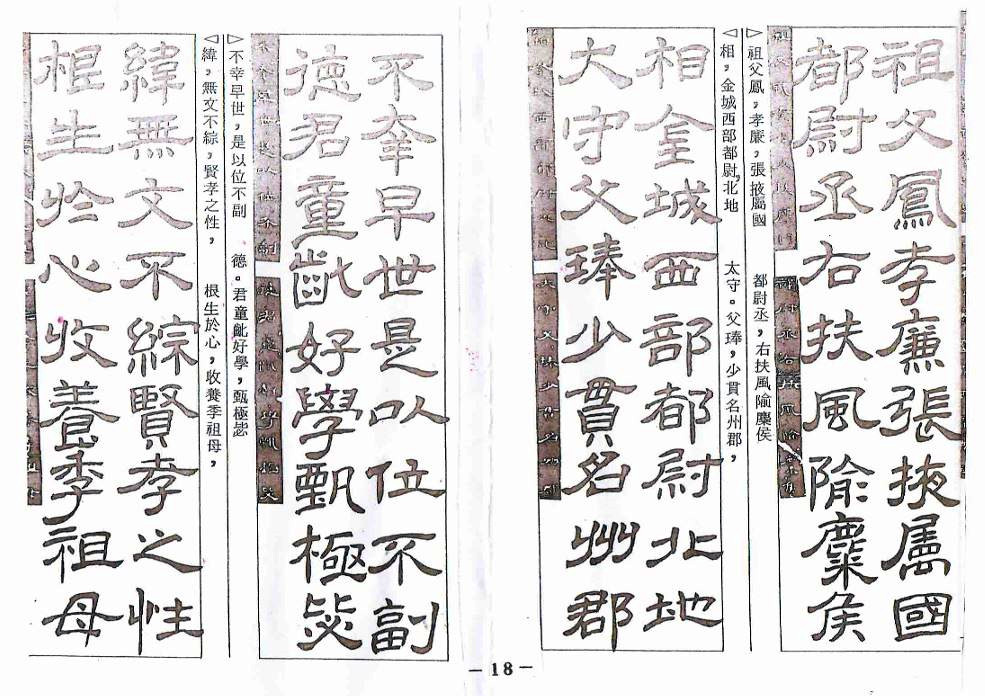 祖父鳳孝廉張掖屬國
都尉丞右扶風隃麋侯
▷祖父鳳，孝廉，張掖屬國　都尉丞，右扶風隃麋侯
◁相，金城西部都尉，北地　太守。父琫，少貫名州郡，
相金城西部都尉北地
大守父琫少貫名州郡
不幸早世是以位不副
德君童齔好學甄極毖
▷不幸早世，是以位不副　德。君童齔好學，甄極毖
◁緯，無文不綜，賢孝之性，　根生於心，收養季祖母，
緯無文不綜賢孝之性
根生於心收養季祖母
—18—